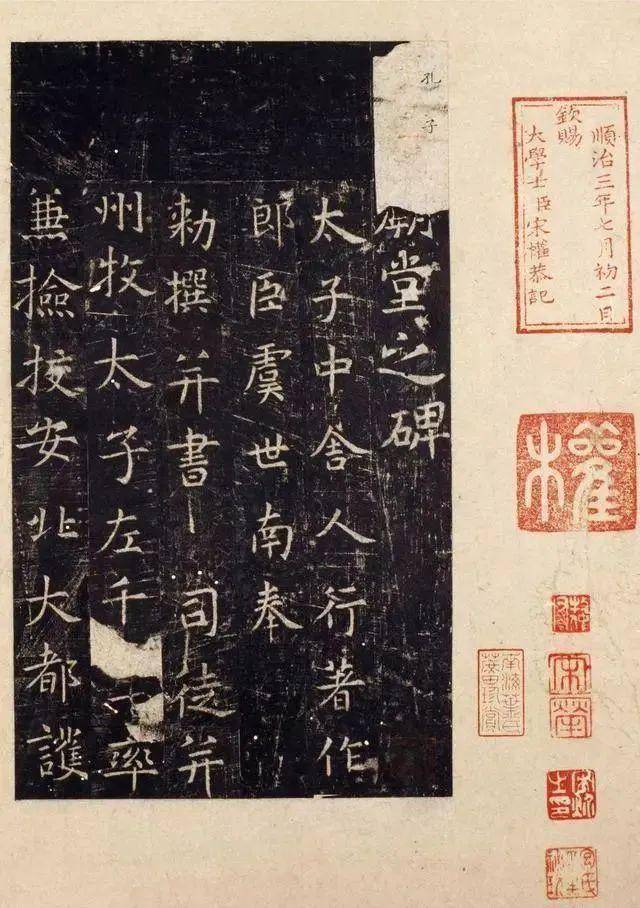 順治三年七月初二日
欽賜
大學士臣宋權恭記
權
孔子
廟堂之碑
太子中舍人行著作
郎臣虞世南奉
勅撰并書 司徒并
州牧太子左千率
兼撿挍安北大都護